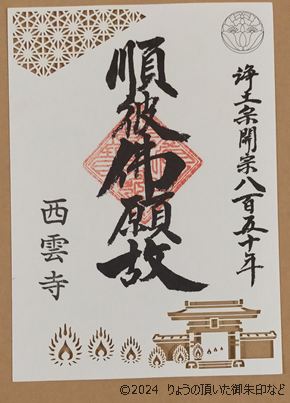 浄土宗開宗八百五十年
順彼佛願故
西雲寺
©2024 りょうの頂いた御朱印など